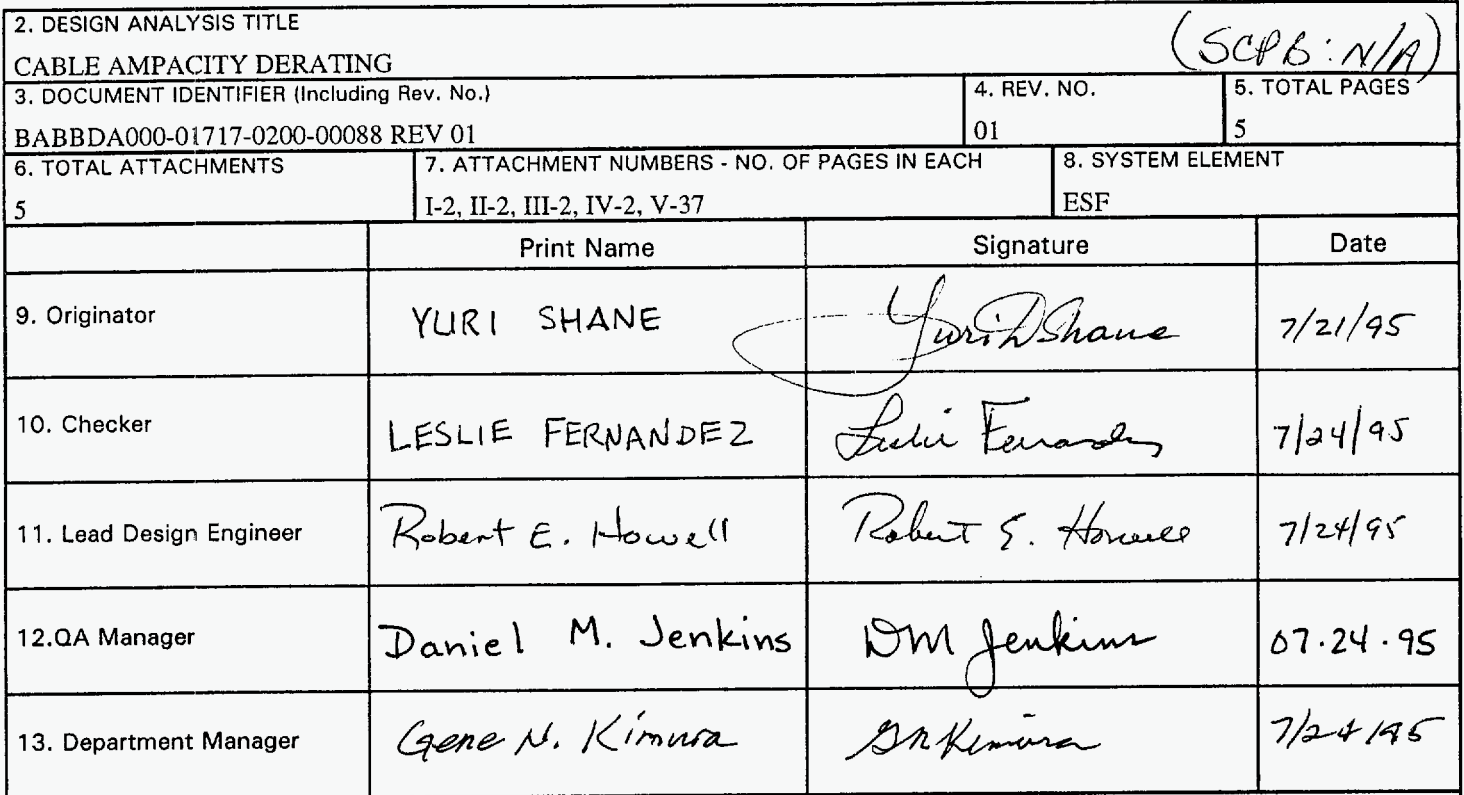 2. DESIGN ANALYSIS TITLE
(SCPB: N/A)
CABLE AMPACITY DERATING
3. DOCUMENT IDENTIFIER (Including Rev. No.)
4. REV. NO.
5. TOTAL PAGES
BABBDA000-01717-0200-00088 REV 01
01
5
6. TOTAL ATTACHMENTS
7. ATTACHMENT NUMBERS - NO. OF PAGES IN EACH
8. SYSTEM ELEMENT
5
I-2, II-2, III-2, IV-2, V-37
ESF
Print Name
Signature
Date
9. Originator
YURI SHANE
Yuri D Shane
7/21/95
10. Checker
LESLIE FERNANDEZ
Leslie Fernandez
7/24/95
11. Lead Design Engineer
Robert E. Howell
Robert E. Howell
7/24/95
12.QA Manager
Daniel M. Jenkins
DM Jenkins
07.24.95
13. Department Manager
Gene N. Kimura
GN Kimura
7/24/95